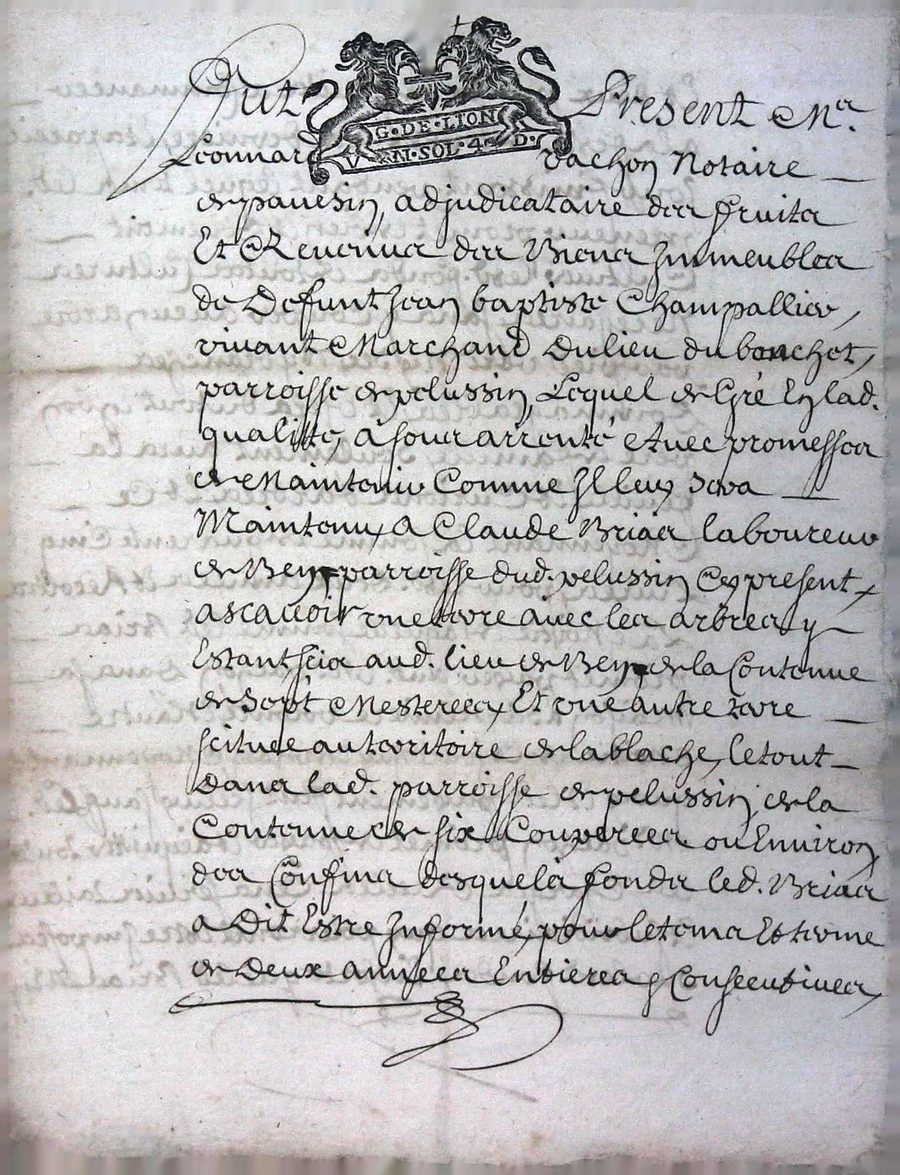 Fut Present Me.
G·DE·LION
VN·SOL·4·D·
Leonnard Vachon Notaire
de pavesin, adjudicataire des fruits
Et Revenus des Biens Immeubles
de Defunt Jean baptiste Champallier,
vivant Marchand Dulieu du bouchet,
parroisse de pelussin, Lequel de Gré En lad.
qualitté, à sousarrenté Avec promesses
de Maintenir Comme Il luy Sera
Maintenu, A Claude Brias laboureur
de Beny parroisse dud. pelussin Cy present,
ascavoir une terre avec les arbres y
Estant scis aud. lieu de Beny de la Contenue
de Sept Mesterees, Et une autre terre
scituée au territoire de lablache, le tout
Dans lad. parroisse de pelussin, de la
Contenue de six Couperees ou Environ,
des Confins desquels fonds led. Brias
a Dit Estre Informé, pour le tems Et terme
de Deux années Entieres & Consecutives,